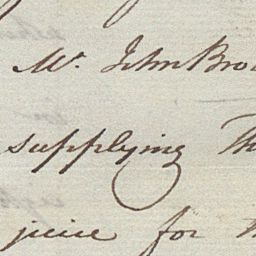 Mr. John Bro
supplying Th
juice for th